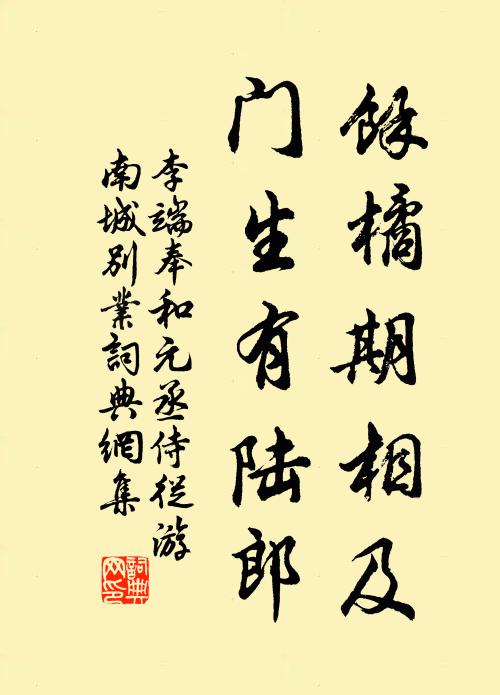 餘橘期相及
门生有陆郎
李端奉和元丞侍從游
南城别業詞典網集
詞典网印